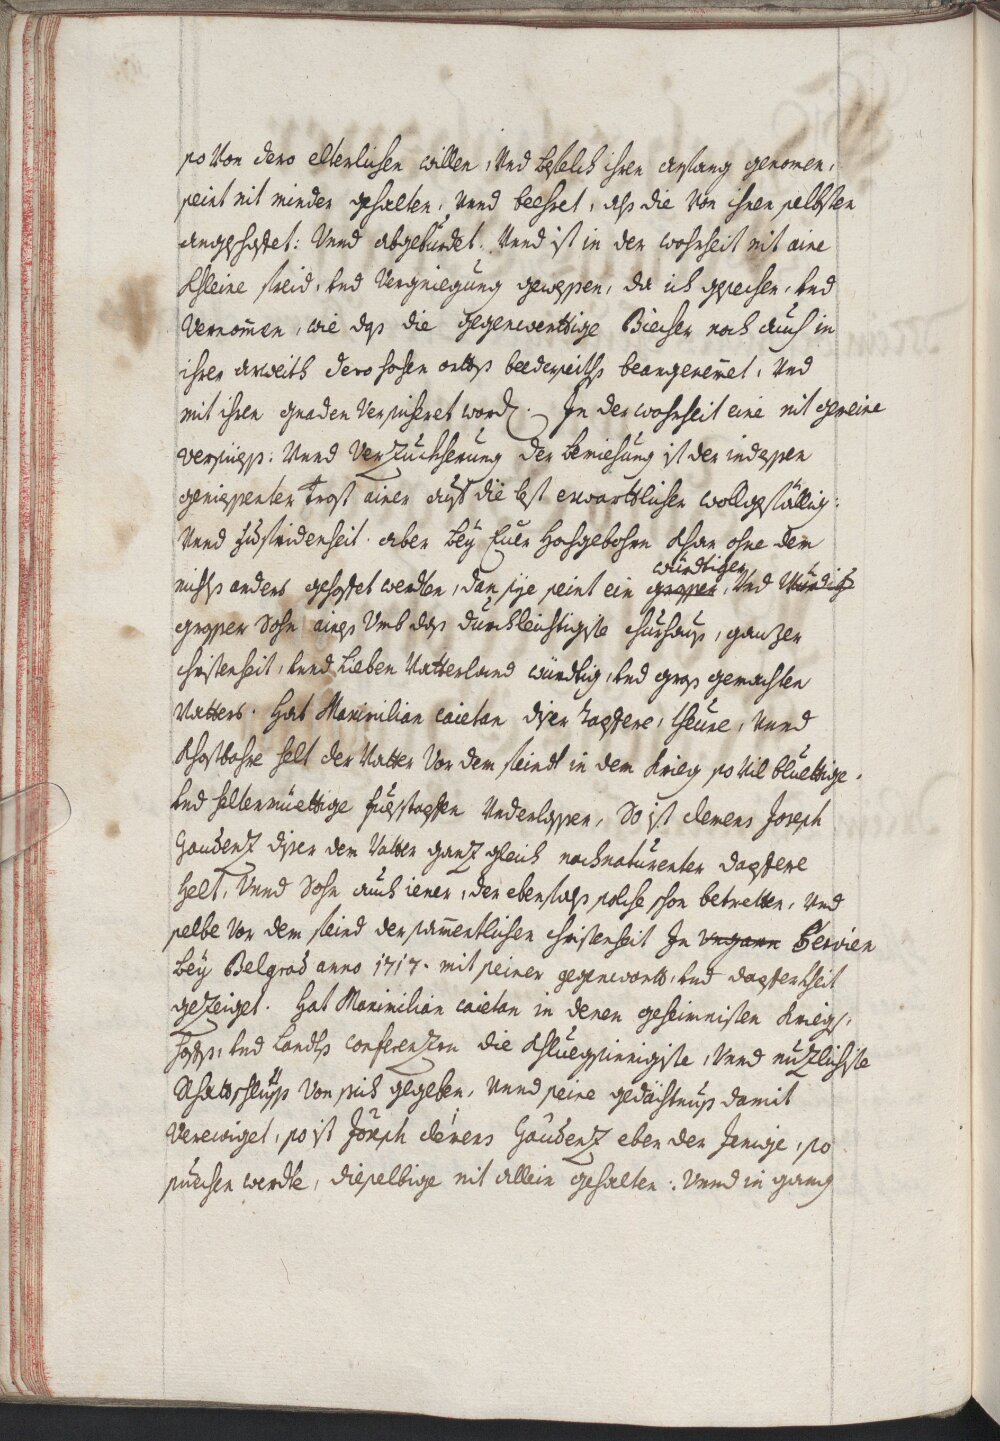 so Von dero elterlichen willen, Vnd befelch ihren anfang genomen,
seint nit minder gehalten, Vnnd beehret, alß die Von ihnen selbsten
angeschaffet: Vnnd abgebürdet. Vnnd ist in der wahrheit nit aine
Khleine freid, vnd Vergniegung gewessen, da ich gesechen, vnd
Vernommen, wie daß die gegenwerttige Biecher noch auch in
ihrer arweith dero hohen orttß beederseithß beangenemet, Vnd
mit ihren gnaden Versicheret word. In der wahrheit eine nit gemeine
Versiess: Vnnd Verzuckherung der bemiehung ist der indessen
geniessenter Trost ainer auf die lest erwarttlichen wollgefällig:
Vnnd zufridenheit. aber bey Euer Hochgebohrn khan ohne dem
nichts anders gehoffet werdten, dan sye seint ein grosser würdtiger, Vnd Würdig
grosser Sohn aines Vmb das durchleichtigiste churhauß, ganzer
christenheit, vnnd lieben Vatterland würdtig, vnd groß gemachten
Vatters. Hat Maximilian caietan diser dapffere, theure, Vnnd
Khostbahre helt der Vatter Vor dem feindt in dem Krieg so Vil bluettige,
vnd heltenmüettige fuesstapffen Vnderlassen, So ist clemens Joseph
Gaudenz diser dem Vatter ganz gleich nachnaturenter dapffere
Helt, Vnnd Sohn auch iener, der ebenfals solche schon betretten, Vnd
selbe Vor dem feind der sammentlichen christenheit In Vngarn Servien
bey Belgrad anno 1717. mit seiner gegenwartt, vnd dapfferkheit
gezeiget. Hat Maximilian caietan in denen geheimnisten Kriegs,
Hoffs, vnd Landts conferenzen die Khluegsinnigiste, Vnnd nuzlichste
Rhattschluss Von sich gegeben, Vnnd seine gedächtnuß damit
Verewiget, so ist Joseph clemens Gaudenz eben der Jenige, so
suechen werdte, dieselbige nit allein gehalten: Vnnd in gang